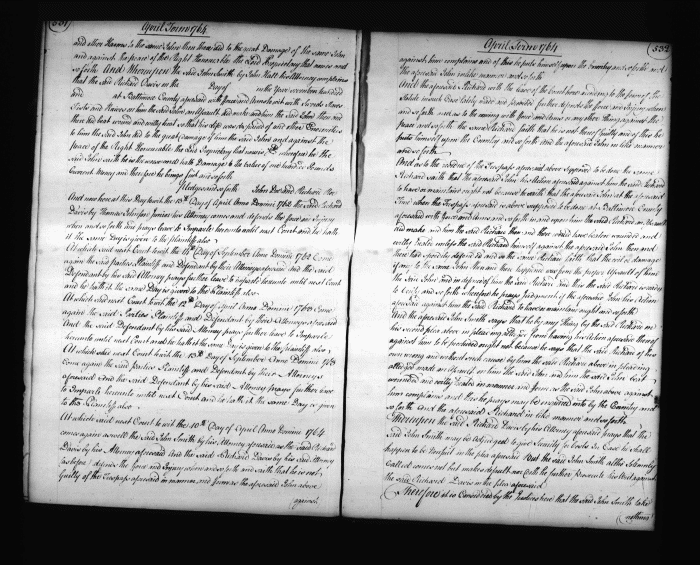 (531)
April Term 1764
and other Harms to the same John then there did to the great Damage of the same John
and against the peace of the Right Honourable the Lord Proprietary that now is and
so forth And Whereupon the said John Smith by John Hall his Attorney complains
that the said Richard Davis on the Day of in the Year seventeen hundred
and at Baltimore County aforesaid with force and Arms to wit with Swords Staves
Sticks and Knives on him the said John an Assault did make and him the said John then and
there did beat wound and evilly treat so that his life was despaired of and other Enormities
to him the said John did to the great damage of him the said John and against the
peace of the Right Honourable the Lord Proprietary that now is wherefore he the
said John saith he is the worse and hath Damage to the value of one hundred Pounds
Current money and therefore he brings suit and so forth
Pledges and so forth John Doe and Richard Roe
And now here at this Day to wit the 13th Day of April Anno Domini 1762 the said Richard
Davis by Thomas his Attorney comes and defends the force and Injury
when and so forth and prays leave to Imparle hereunto until next Court and he hath
it the same Day is given to the plaintiff also
At which said next Court to wit the Day of September Anno Domini 1762 Come
again the said parties Plaintiff and Defendant by their Attorneys aforesaid And the said
Defendant by his said Attorney prays further leave to Imparle hereunto until next Court
and he hath it the same Day is given to the Plaintiff also
At which said next Court to wit the 12th Day of April Anno Domini 1763 Come
again the said Parties Plaintiff and Defendant by their Attorneys aforesaid
And the said Defendant by his said Attorney prays further leave to Imparle
hereunto until next Court and he hath it the same Day is given to the plaintiff also
At which said next Court to wit the 13th Day of September Anno Domini 1763
come again the said Parties Plaintiff and Defendant by their Attorneys
aforesaid And the said Defendant by his said Attorney prays further time
to Imparle hereunto until next Court and he hath it the same Day is given
to the Plaintiff also
At which said next Court to wit the 10th Day of April Anno Domini 1764
comes again as well the said John Smith by his Attorney aforesaid as the said Richard
Davis by his Attorney aforesaid And the said Richard Davis by his said Attorney
as before defends the force and Injury when and so forth and saith that he is not
Guilty of the Trespass aforesaid in manner and form as the aforesaid John above
against
April Term 1764
(532)
against him complains and of this he puts himself upon the Country and so forth and
the aforesaid John in like manner and so forth
And the aforesaid Richard with the leave of the Court here according to the form of the
Statute in such Case lately made and provided further defends the force and Injury when
and so forth and as to the coming with force and Arms or any other thing against the
peace and so forth the same Richard saith that he is not thereof Guilty and of this he
puts himself upon the Country and so forth And the aforesaid John in like manner
and so forth
And as to the residue of the Trespass aforesaid above supposed to be done the same
Richard saith that the aforesaid John his action aforesaid against him the said Richard
to have or maintain ought not because he saith that the aforesaid John at the aforesaid
Time when the Trespass aforesaid is above supposed to be done at Baltimore County
aforesaid with force and Arms and so forth in and upon him the said Richard an Assault
did make and him the said Richard then and there would have beaten wounded and
evilly treated wherefore the said Richard himself against the aforesaid John then and
there did speedily defend as and so the same Richard saith that the evil or damage
if any to the same John then and there happened was from the proper Assault of him
the said John and in defence of him the said Richard and this the said Richard is ready
to verify and so forth wherefore he prays Judgment if the aforesaid John his Action
aforesaid against him the said Richard to have or maintain ought and so forth
And the aforesaid John Smith says that he by any thing by the said Richard in
his second plea above in pleading alledged from having his action aforesaid thereof
against him to be preferred ought not because he says that the said Richard of his
own wrong and without such cause by him the said Richard above in pleading
alledged made an Assault on him the said John and him the said John beat
wounded and evilly treated in manner and form as the said John above against
him complains and this he prays may be enquired into by the Country and
so forth And the aforesaid Richard in like manner and so forth
Whereupon the said Richard Davis by his Attorney aforesaid prays that the
said John Smith may be Adjudged to give Security for Costs in Case he shall
happen to be Nonsuit in the plea aforesaid But the said John Smith altho Solemnly
called comes not but makes default nor doth he further prosecute his Writ against
the said Richard Davis in the plea aforesaid
Therefore it is Considered by the Justices here that the said John Smith take
nothing